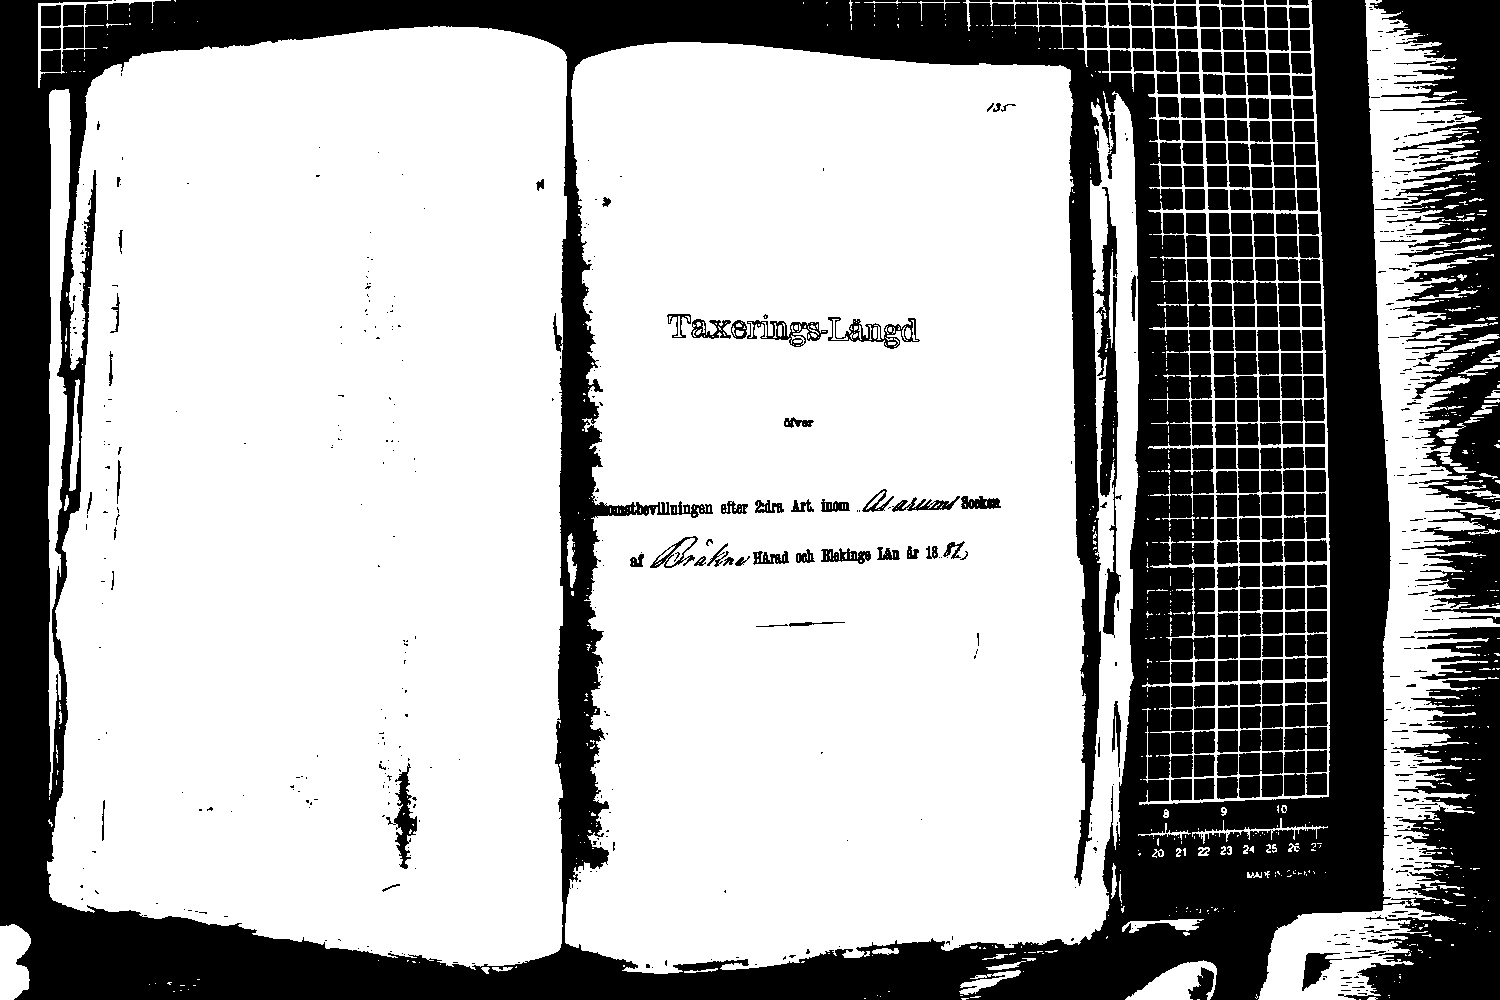 135
Taxerings-Längd
öfver
komstbevillningen efter 2:dra Art. inom Asarums Socken
af Bräkne Härad och Blekinge Län år 1882,
8 9 10
20 21 22 23 24 25 26 27
MADE IN GERMANY